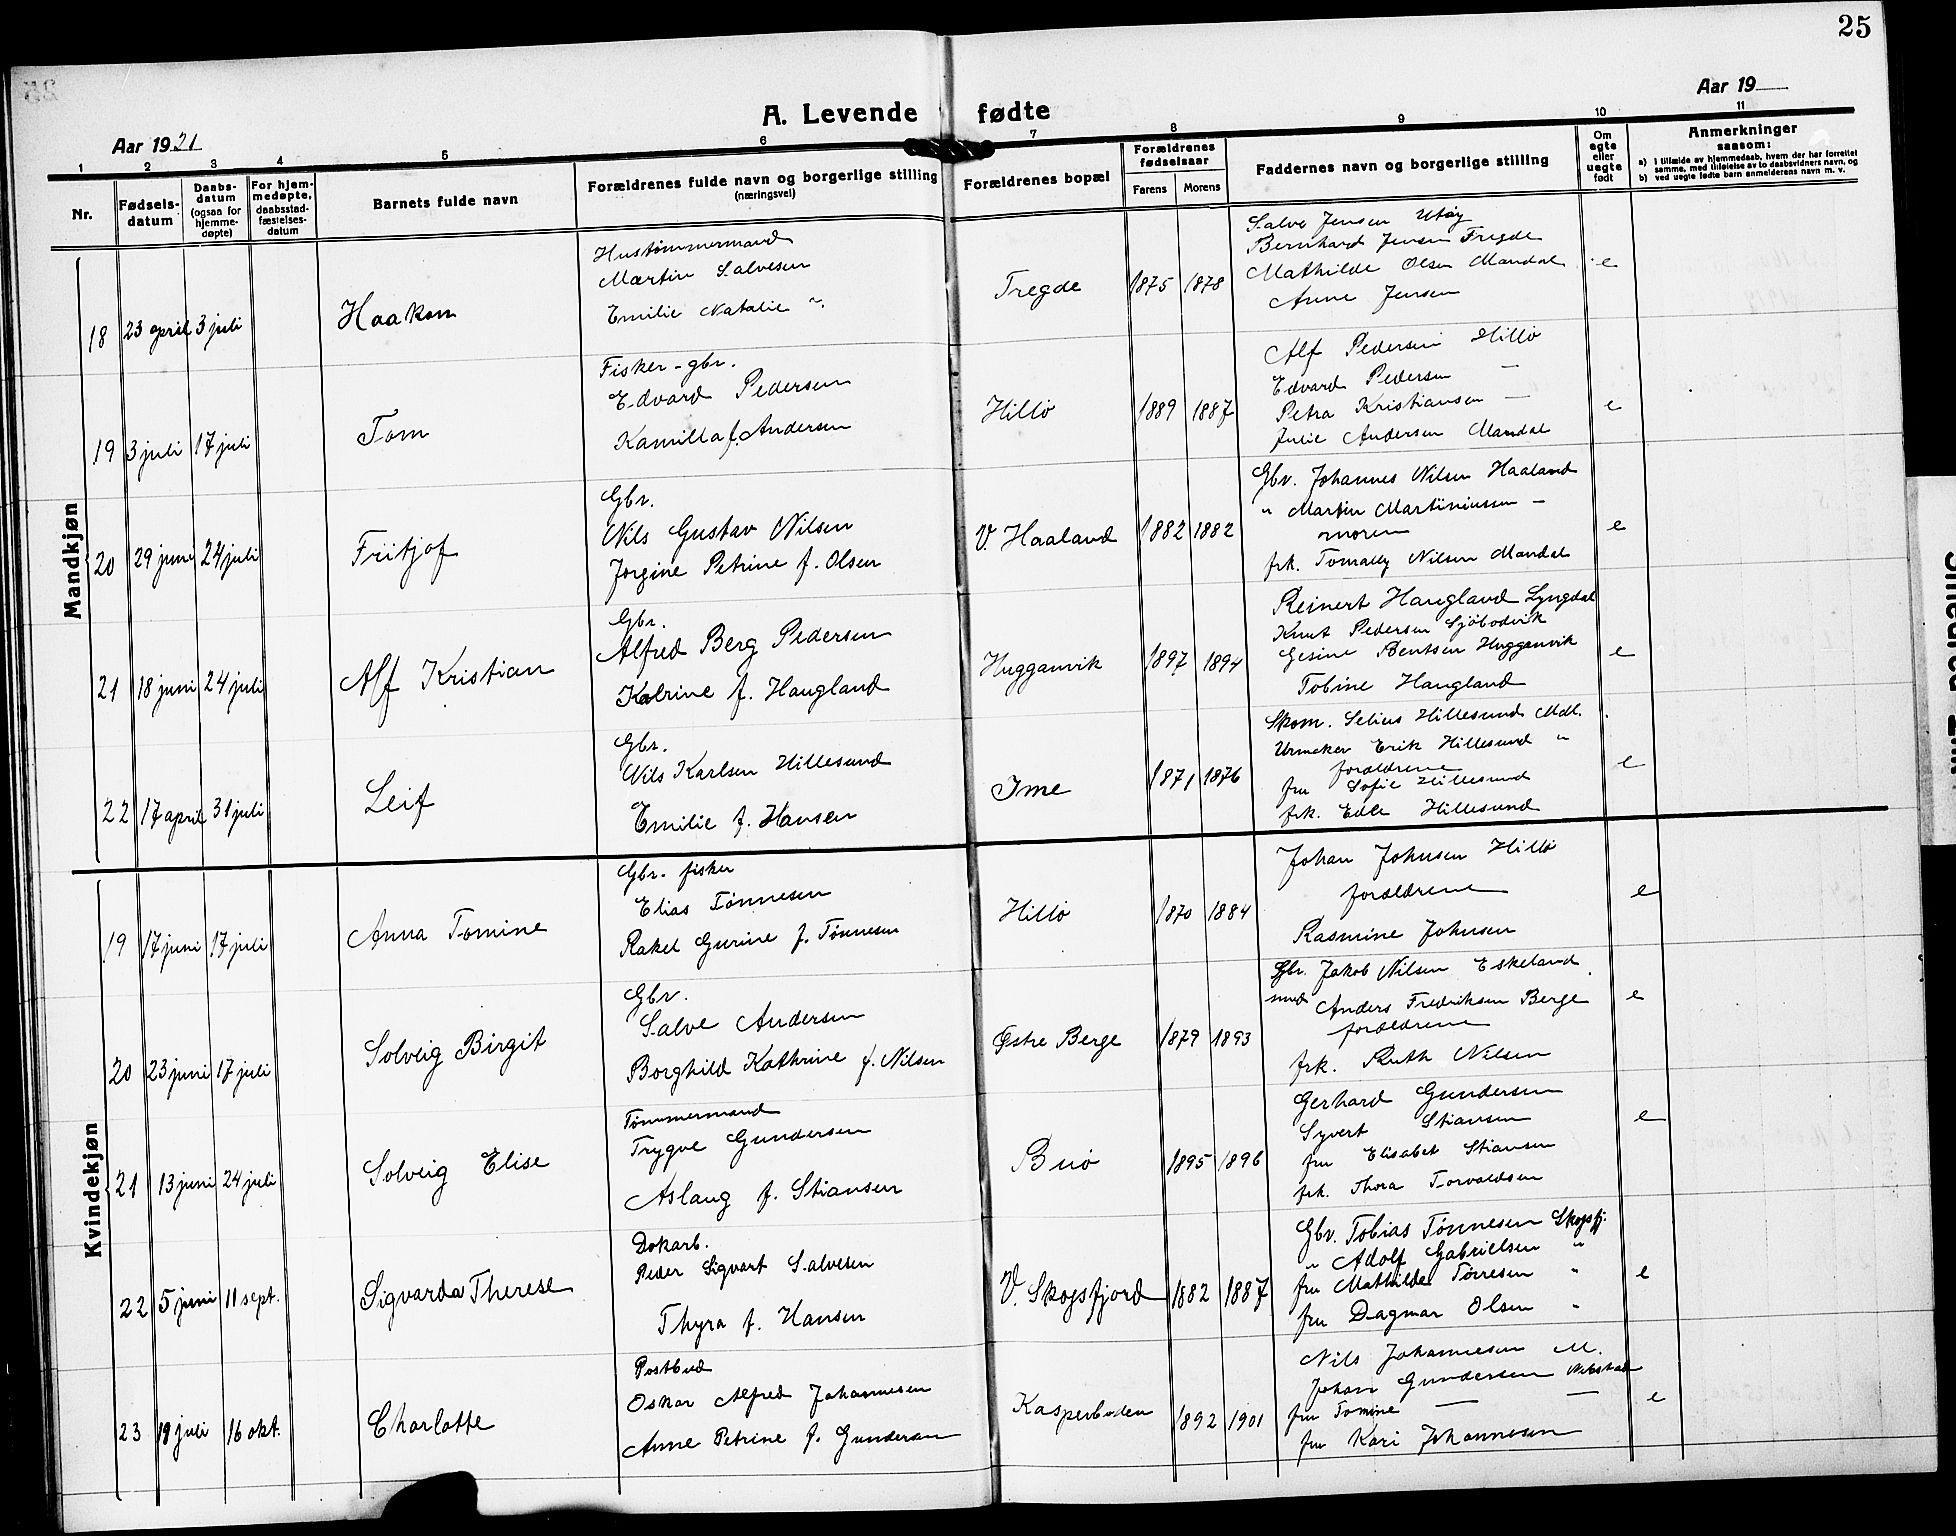 25
A. Levende fødte
Aar 1921
Aar 19
1 2 3 4 5 6 7 8 9 10 11
Nr.
Fødsels-datum
Daabs-datum (ogsaa for hjemme-døpte)
For hjem-medøpte, daabsstad-fæstelses-datum
Barnets fulde navn
Forældrenes fulde navn og borgerlige stilling (næringsvei)
Forældrenes bopæl
Forældrenes fødselsaar
Farens Morens
Faddernes navn og borgerlige stilling
Om egte eller uegte født
Anmerkninger saasom:
a) i tilfælde av hjemmedaab, hvem der har forrettet samme, med tilføielse av to daabsvidners navn, og
b) ved uegte fødte barn anmelderens navn m. v.
Mandkjøn
18 23 april 3 juli
Haakon
Hustømmermand
Martin Salvesen
Emilie Natalie "
Tregde 1875 1878
Salve Jensen Utøy
Bernhard Jensen Tregde
Mathilde Olsen Mandal
Anne Jensen
e
19 3 juli 17 juli
Tom
Fisker-gbr.
Edvard Pedersen
Kamilla f. Andersen
Hillø 1889 1887
Alf Pedersen Hillø
Edvard Pedersen —
Petra Kristiansen —
Julie Andersen Mandal
e
20 29 juni 24 juli
Fritjof
Gbr.
Nils Gustav Nilsen
Jorgine Petrine f. Olsen
V. Haaland 1882 1882
Gbr. Johannes Nilsen Haaland
" Martin Martiniussen —
moren
frk. Tomally Nilsen Mandal
e
21 18 juni 24 juli
Alf Kristian
Gbr.
Alfred Berg Pedersen
Katrine f. Haugland
Hugganvik 1897 1894
Reinert Haugland Lyngdal
Knut Pedersen Sjöbodvik
Gesine Bentsen Hugganvik
Tobine Haugland
e
22 17 april 31 juli
Leif
Gbr.
Nils Karlsen Hillesund
Emilie f. Hansen
Ime 1871 1876
Skom. Selius Hillesund Mdl.
Urmaker Erik Hillesund "
forældrene
fru Sofie Hillesund
frk. Edle Hillesund
e
Kvindekjøn
19 17 juni 17 juli
Anna Tomine
Gbr. fisker
Elias Tønnesen
Rakel Gurine f. Tønnesen
Hillø 1870 1884
Johan Johnsen Hillø
forældrene
Rasmine Johnsen
e
20 23 juni 17 juli
Solveig Birgit
Gbr.
Salve Andersen
Borghild Kathrine f. Nilsen
Østre Berge 1879 1893
Gbr. Jakob Nilsen Eskeland
smed Anders Fredriksen Berge
forældrene
frk. Ruth Nilsen
e
21 13 juni 24 juli
Solveig Elise
Tømmermand
Trygve Gundersen
Aslaug f. Stiansen
Buø 1895 1896
Gerhard Gundersen
Syvert Stiansen
fru Elisabet Stiansen
frk. Thora Torvaldsen
e
22 5 juni 11 sept.
Sigvarda Therese
Dokarb.
Peder Sigvart Salvesen
Thyra f. Hansen
V. Skogsfjord 1882 1887
Gbr. Tobias Tønnesen Skogsfj.
" Adolf Gabrielsen "
fru Mathilde Tørresen "
fru Dagmar Olsen "
e
23 19 juli 16 okt.
Charlotte
Postbud
Oskar Alfred Johannesen
Anne Petrine f. Gundersen
Kasperboden 1892 1901
Nils Johannesen M.
Johan Gundersen
fru Tomine — —
fru Kari Johannesen
e